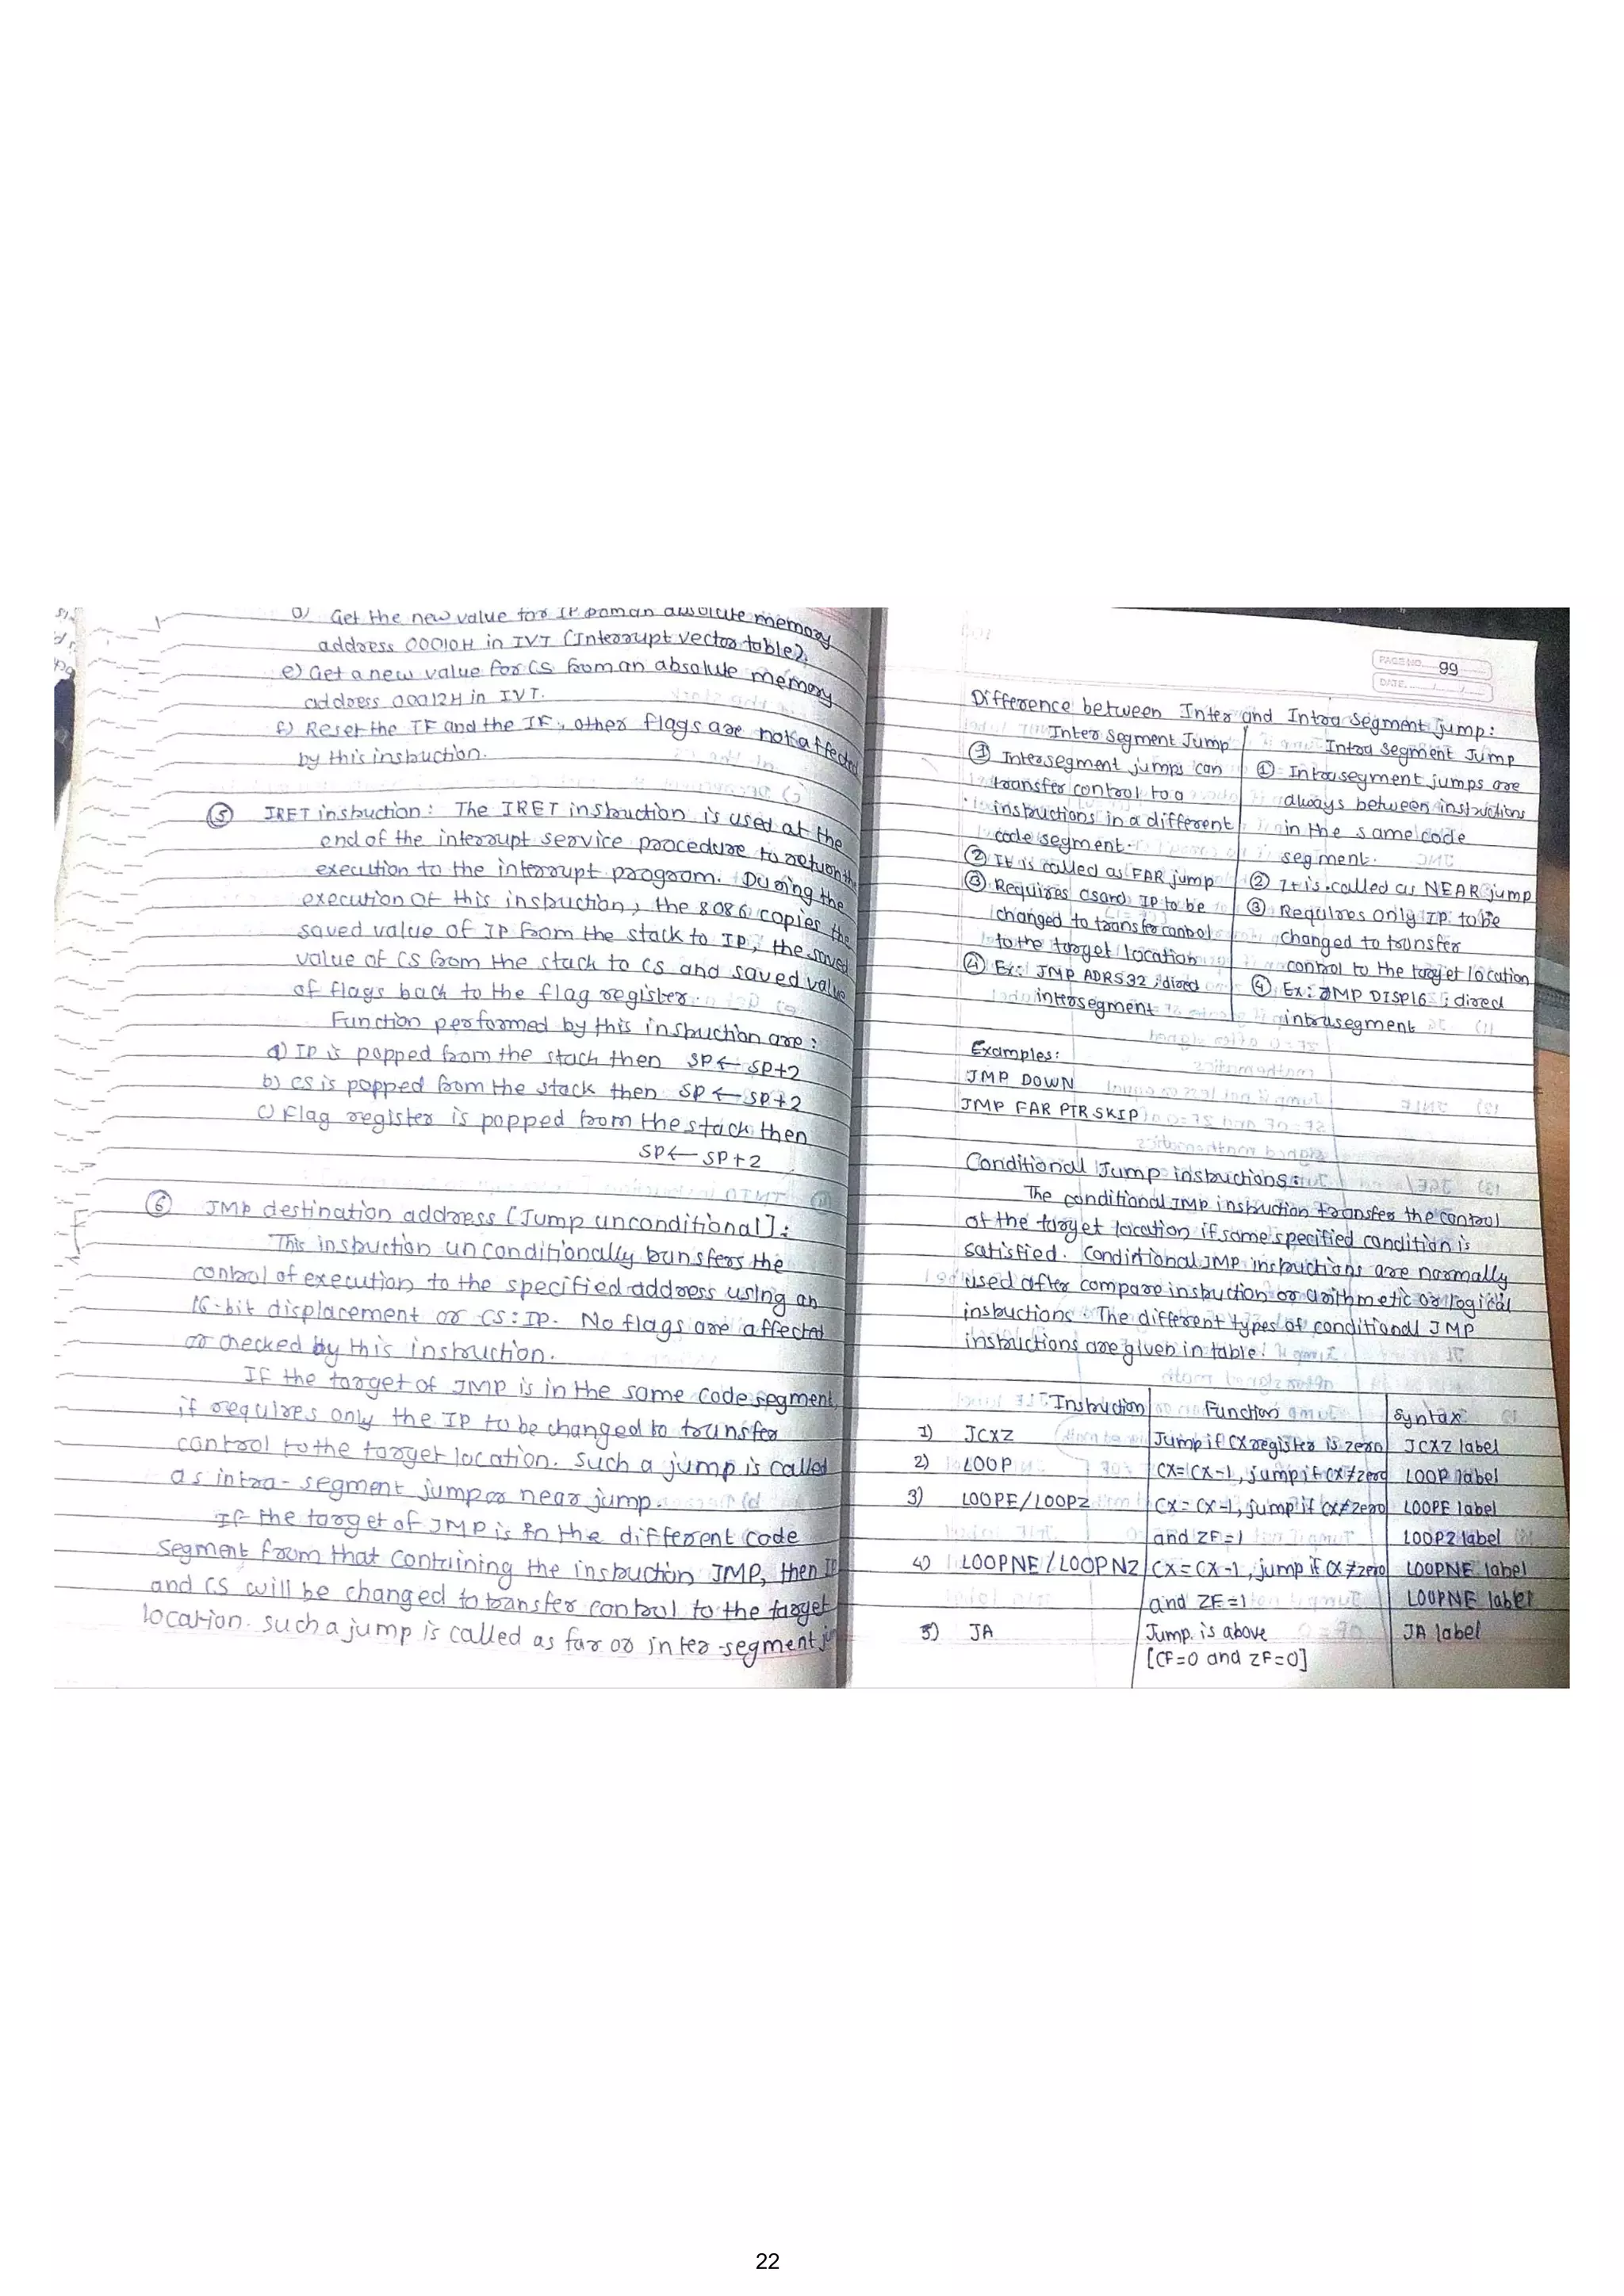 d) Get the new value for IP from an absolute memory
address 00010H in IVT (Interrupt vector table).
e) Get a new value for CS from an absolute memory
address 00012H in IVT.
f) Reset the TF and the IF, other flags are not affected
by this instruction.
⑤ IRET instruction: The IRET instruction is used at the
end of the interrupt service procedure to return the
execution to the interrupt program. During the
execution of this instruction, the 8086 copies the
saved value of IP from the stack to IP, the saved
value of CS from the stack to CS and saved value
of flags back to the flag register.
Function performed by this instruction are:
a) IP is popped from the stack then SP ← SP+2
b) CS is popped from the stack then SP ← SP+2
c) Flag register is popped from the stack then
SP ← SP+2
⑥ JMP destination address [Jump unconditional]:
This instruction unconditionally transfers the
control of execution to the specified address using an
16-bit displacement or CS:IP. No flags are affected
or checked by this instruction.
If the target of JMP is in the same code segment,
it requires only the IP to be changed to transfer
control to the target location. Such a jump is called
as intra-segment jump or near jump.
If the target of JMP is in the different code
segment from that containing the instruction JMP, then IP
and CS will be changed to transfer control to the target
location. such a jump is called as far or inter-segment
PAGE NO. 99
DATE
Difference between Inter and Intra segment jump:
Inter segment Jump | Intra segment Jump
① Intersegment jumps can | ① Intrasegment jumps are
transfer control to a | always between instructions
instructions in a different | in the same code
code segment. | segment.
② It is called as FAR jump | ② It is called as NEAR jump
③ Requires CS and IP to be | ③ Requires only IP to be
changed to transfer control | changed to transfer
to the target location | control to the target location
④ Ex: JMP ADRS32 ; direct | ④ Ex: JMP DISP16 ; direct
intersegment | intrasegment
Examples:
JMP DOWN
JMP FAR PTR SKIP
Conditional Jump instructions:
The conditional JMP instruction transfer the control
of the target location if some specified condition is
satisfied. Conditional JMP instructions are normally
used after compare instruction or arithmetic or logical
instructions. The different types of conditional JMP
instructions are given in table:
Instruction | Function | Syntax
1) JCXZ | Jump if CX register is zero | JCXZ label
2) LOOP | CX=CX-1, jump if CX≠zero | LOOP label
3) LOOPE/LOOPZ | CX=CX-1, jump if CX≠zero | LOOPE label
and ZF=1 | LOOPZ label
4) LOOPNE/LOOPNZ | CX=CX-1, jump if CX≠zero | LOOPNE label
and ZF=1 | LOOPNE label
5) JA | Jump is above | JA label
[CF=0 and ZF=0]
22